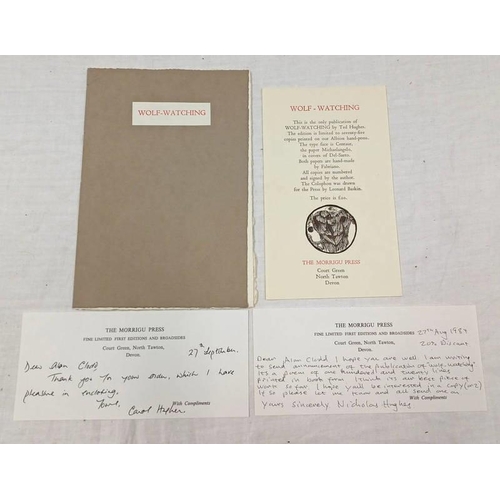 WOLF-WATCHING
WOLF - WATCHING
This is the only publication of
WOLF-WATCHING by Ted Hughes.
The edition is limited to seventy-five
copies printed on our Albion hand-press.
The type face is Centaur,
the paper Michaelangelo,
in covers of Del-Sarto.
Both papers are hand-made
by Fabriano.
All copies are numbered
and signed by the author.
The Colophon was drawn
for the Press by Leonard Baskin.
The price is £101.
THE MORRIGU PRESS
Court Green
North Tawton
Devon
THE MORRIGU PRESS
FINE LIMITED FIRST EDITIONS AND BROADSIDES
Court Green, North Tawton,
Devon.
27th September.
Dear Alan Clodd,
Thank you for your order, which I have
pleasure in enclosing.
Yours,
Carol Hughes
With Compliments
THE MORRIGU PRESS
FINE LIMITED FIRST EDITIONS AND BROADSIDES
Court Green, North Tawton,
Devon.
27th Aug 1982
20% Discount
Dear Alan Clodd I hope you are well I am writing
to send announcement of the publication of 'Wolf-Watching'
It's a poem of one hundred and twenty lines
printed in book form I think it's our best piece of
work so far I hope you'll be interested in a copy (or 2)
If so please let me know and I'll send one on
Yours Sincerely Nicholas Hughes
With Compliments